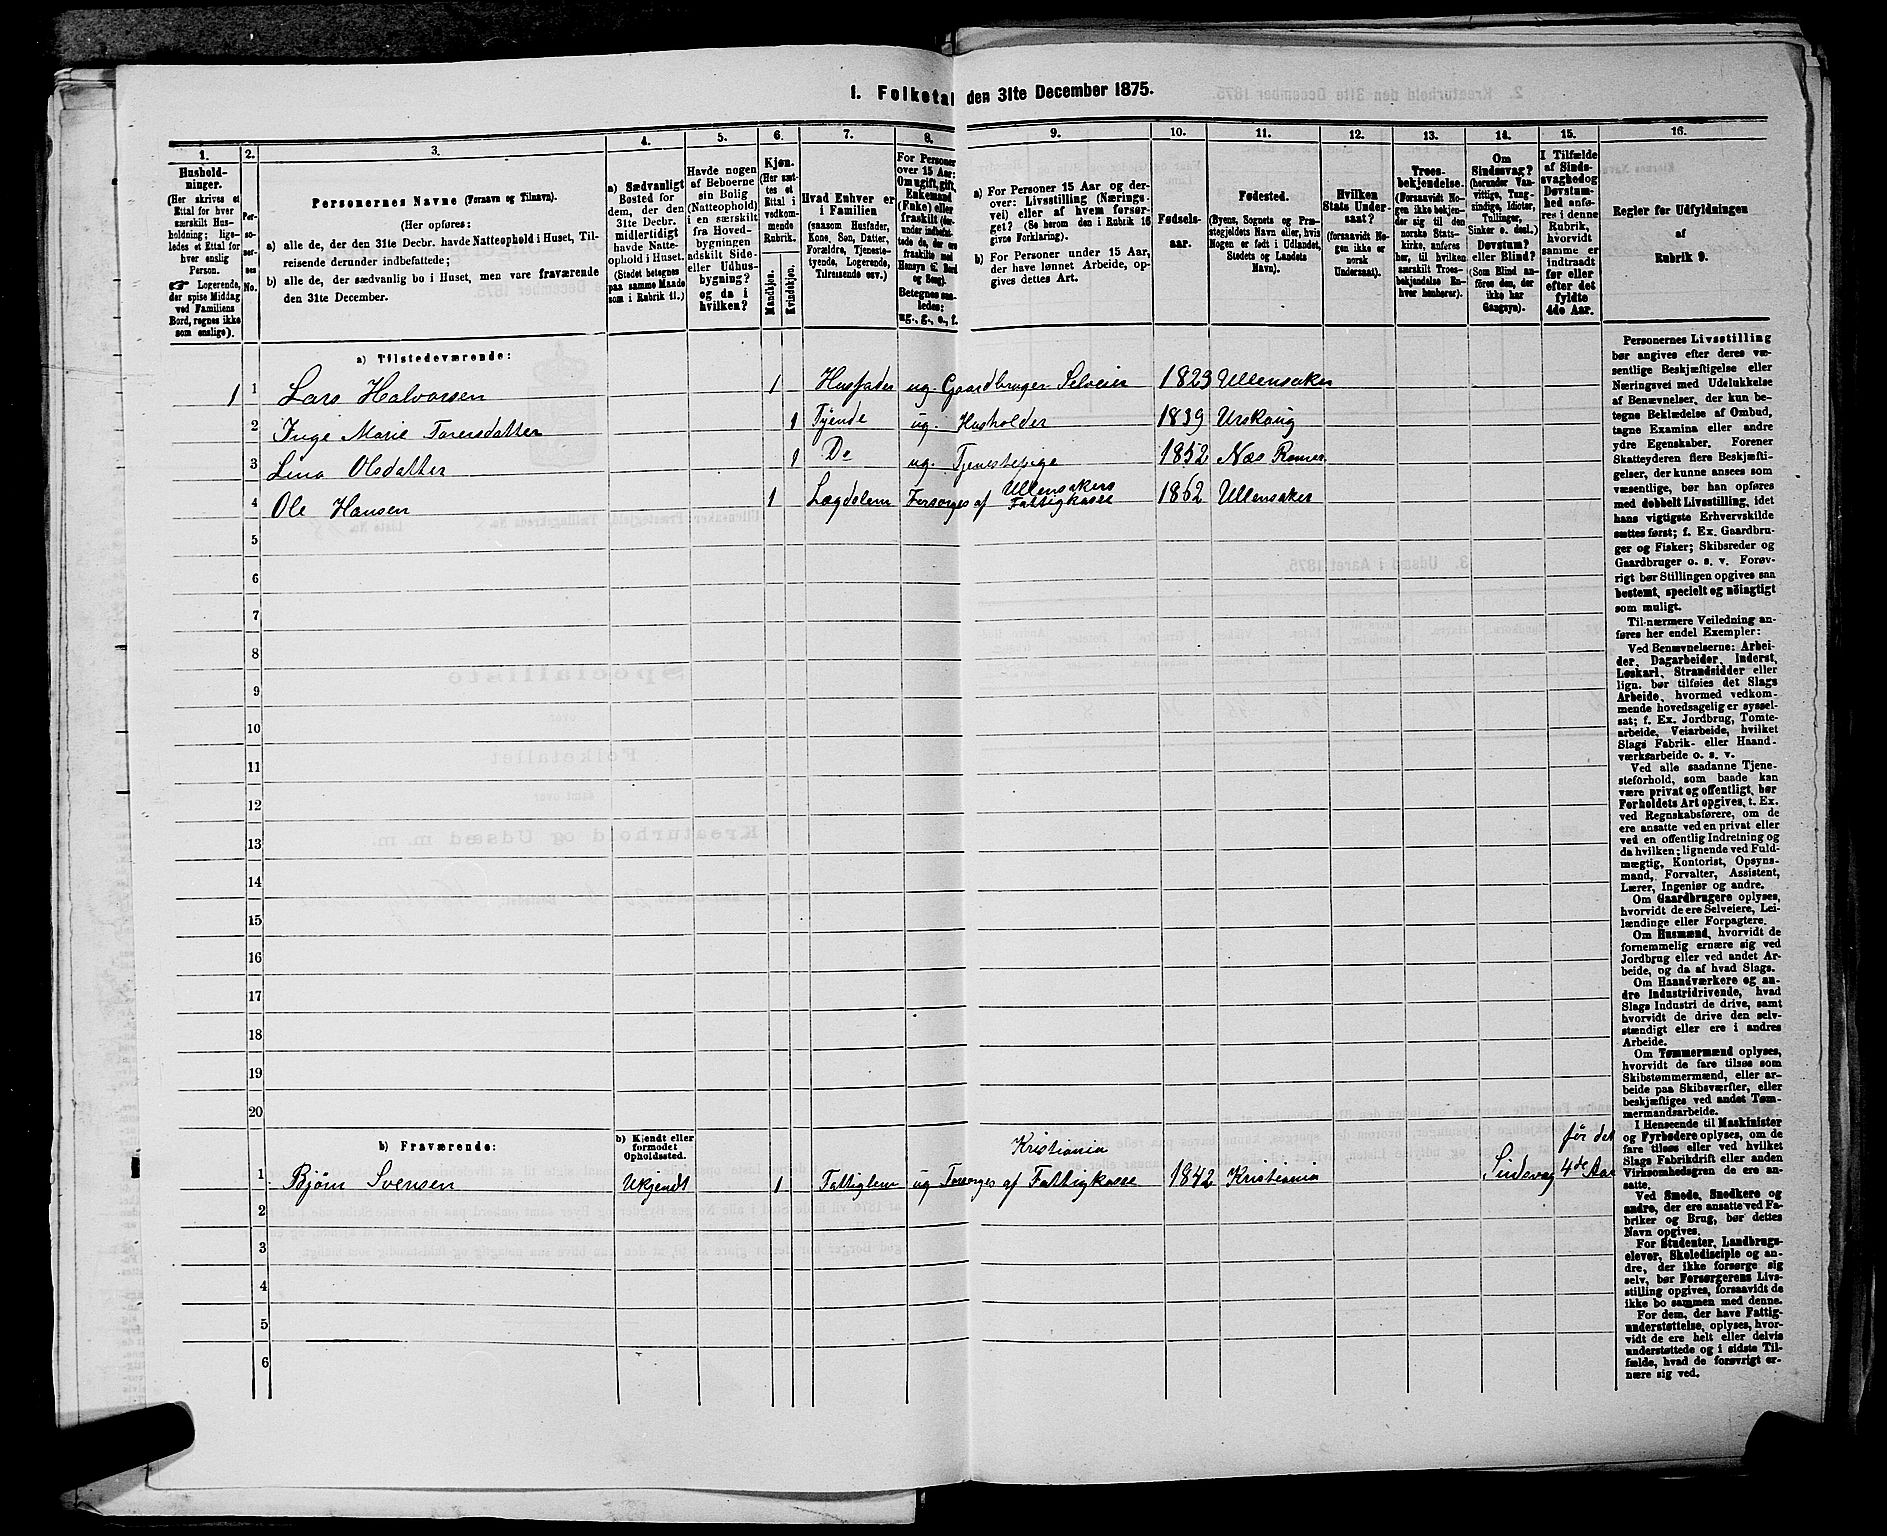 1. Folketal den 31te December 1875.
1.
2.
3.
4.
5.
6.
7.
8.
9.
10.
11.
12.
13.
14.
15.
16.
Hushold-
ninger.
(Her skrives et
Ettal for hver
særskilt Hus-
holdning; lige-
ledes et Ettal for
hver enslig
Person.
☞ Logerende,
der spise Middag
ved Familiens
Bord, regnes ikke
som enslige).
Per-
so-
ner-
nes
No.
Personernes Navne (Fornavn og Tilnavn).
(Her opføres:
a) alle de, der den 31te Decbr. havde Natteophold i Huset, Til-
reisende derunder indbefattede;
b) alle de, der sædvanlig bo i Huset, men vare fraværende
den 31te December.
a) Sædvanligt
Bosted for
dem, der den
31te Decbr.
midlertidigt
havde Natte-
ophold i Huset.
(Stedet betegnes
paa samme Maade
som i Rubrik 11.)
Havde nogen
af Beboerne
sin Bolig
(Natteophold)
i en særskilt
fra Hoved-
bygningen
adskilt Side-
eller Udhus-
bygning?
og da i
hvilken?
Kjøn.
(Her sæt-
tes et
Ettal i
vedkom-
mende
Rubrik.
Mandkjøn.
Kvindekjøn.
Hvad Enhver er
i Familien
(saasom Husfader,
Kone, Søn, Datter,
Forældre, Tjeneste-
tyende, Logerende,
Tilreisende osv.)
For Personer
over 15 Aar:
Om ugift, gift,
Enkemand
(Enke) eller
fraskilt
Betegnes saa-
ledes:
ug., g., e., f.
a) For Personer 15 Aar og der-
over: Livsstilling (Nærings-
vei) eller af hvem forsør-
get? (Se herom den i Rubrik 16
givne Forklaring).
b) For Personer under 15 Aar,
der have lønnet Arbeide, op-
gives dettes Art.
Fødsels-
aar.
Fødested.
(Byens, Sognets og Præ-
stegjeldets Navn eller, hvis
Nogen er født i Udlandet,
Stedets og Landets
Navn).
Hvilken
Stats Under-
saat?
(forsaavidt No-
gen ikke er
norsk
Undersaat).
Troes-
bekjendelse.
(Forsaavidt No-
gen ikke bekjen-
der sig til den
norske Stats-
kirke, anføres
her, til hvilken
særskilt Troes-
bekjendelse En-
hver henhører).
Om
Sindssvag?
(herunder Van-
vittige, Tung-
sindige, Idioter,
Tullinger,
Sinker o. desl.)
Døvstum?
eller Blind?
(Som Blind an-
føres den, der
ikke har
Gangsyn).
I Tilfælde
af Sinds-
svaghed og
Døvstum-
hed anfø-
res i denne
Rubrik,
hvorvidt
samme er
indtraadt
før eller
efter det
fyldte
4de Aar.
Regler for Udfyldningen
af
Rubrik 9.
a) Tilstedeværende:
1 1 Lars Halvorsen 1 Husfader ug. Gaardbruger Selveier 1823 Ullensaker
2 Inge Marie Torersdatter 1 Tyende ug. Husholder 1839 Urskoug
3 Lina Olsdatter 1 Do ug. Tjenestepige 1852 Næs Romer.
4 Ole Hansen 1 Lægdslem Forsørges af Ullensakers Fattigkasse 1862 Ullensaker
5
6
7
8
9
10
11
12
13
14
15
16
17
18
19
20
b) Fraværende:
b) Kjendt eller
formodet
Opholdssted.
Kristiania
før det
1 Bjørn Svensen Ukjendt 1 Fattiglem ug Forsørges af Fattigkasse 1842 Kristiania Sindsvag 4de Aar
2
3
4
5
6
Personernes Livsstilling
bør angives efter deres væ-
sentlige Beskjæftigelse eller
Næringsvei med Udelukkelse
af Benævnelser, der kun be-
tegne Beklædelse af Ombud,
tagne Examina eller andre
ydre Egenskaber. Forener
Skatteyderen flere Beskjæfti-
gelser, der kunne ansees som
væsentlige, bør han opføres
med dobbelt Livsstilling, idet
hans vigtigste Erhvervskilde
sættes først; f. Ex. Gaardbru-
ger og Fisker; Skibsreder og
Gaardbruger o. s. v. Forøv-
rigt bør Stillingen opgives saa
bestemt, specielt og nøiagtigt
som muligt.
Til nærmere Veiledning an-
føres her endel Exempler:
Ved Benævnelserne: Arbei-
der, Dagarbeider, Inderst,
Løskarl, Strandsidder eller
lign. bør tilføies det Slags
Arbeide, hvormed vedkom-
mende hovedsagelig er syssel-
sat; f. Ex. Jordbrug, Tomte-
arbeide, Veiarbeide, hvilket
Slags Fabrik- eller Haand-
værksarbeide o. s. v.
Ved alle saadanne Tjene-
steforhold, som baade kan
være privat og offentligt, bør
Forholdets Art opgives, t. Ex.
ved Regnskabsførere, om de
ere ansatte ved en privat eller
ved en offentlig Indretning og
da hvilken; lignende ved Fuld-
mægtig, Kontorist, Opsyns-
mand, Forvalter, Assistent,
Lærer, Ingeniør og andre.
Om Gaardbrugere oplyses,
hvorvidt de ere Selveiere, Lei-
lændinge eller Forpagtere.
Om Husmænd, hvorvidt de
fornemmelig ernære sig ved
Jordbrug eller ved andet Ar-
beide, og da af hvad Slags.
Om Haandværkere og an-
dre Industridrivende, hvad
Slags Industri de drive, samt
hvorvidt de drive den selv-
stændigt eller ere i andres
Arbeide.
Om Tømmermænd oplyses,
hvorvidt de fare tilsøs som
Skibstømmermænd, eller ar-
beide paa Skibsværfter, eller
beskjæftiges ved andet Tøm-
mermandsarbeide.
I Henseende til Maskinister
og Fyrbødere oplyses, om de
fare tilsøs eller ved hvilket
Slags Fabrikdrift eller anden
Virksomhedsgren de ere an-
satte.
Ved Smede, Snedkere og
andre, der ere ansatte ved Fa-
briker og Brug, bør dettes
Navn opgives.
For Studenter, Landbrugs-
elever, Skoledisciple og an-
dre, der ikke forsørge sig
selv, bør Forsørgerens Livs-
stilling opgives, forsaavidt de
ikke bo sammen med denne.
For dem, der have Fattig-
understøttelse, oplyses, hvor-
vidt de ere helt eller delvis
understøttede og i sidste Til-
fælde, hvad de forøvrigt er-
nære sig ved.